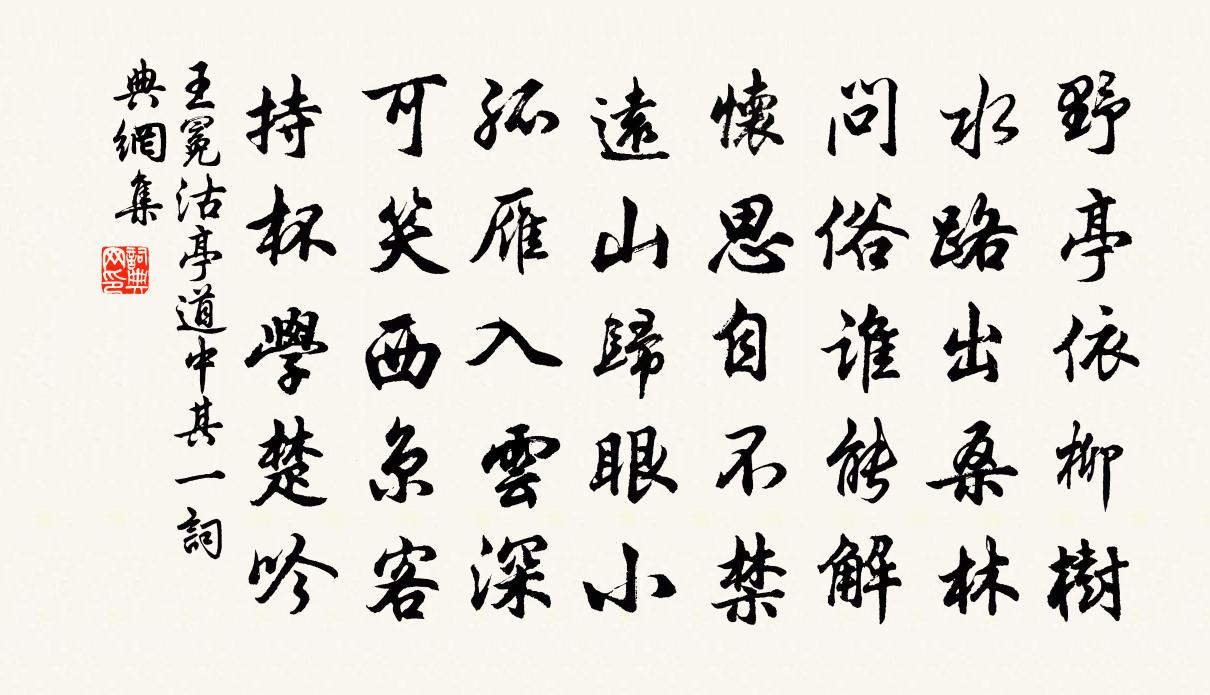 野亭依柳樹
水路出桑林
問俗誰能解
懷思自不禁
遠山歸眼小
孤雁入雲深
可笑西京客
持杯學楚吟
王冕沽亭道中其一詞
典網集
詞典
網印